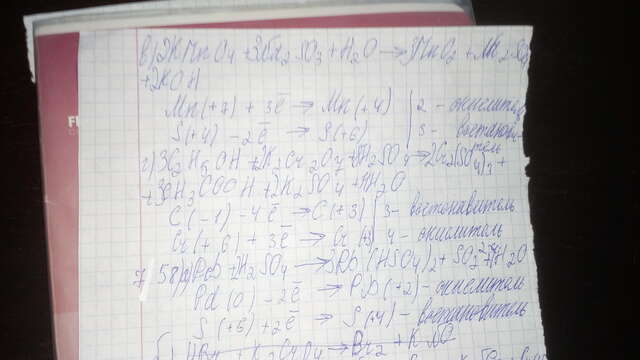 в) 2KMnO4 + 3Na2SO3 + H2O → MnO2 +
+ 2KOH
Mn(+7) + 3ē → Mn(+4) | 2 - окислитель
S(+4) - 2ē → S(+6) | 3 -
г) 3C2H5OH + 2K2Cr2O7 + 8H2SO4 → 2Cr2(SO4)3 +
+ 3CH3COOH + 2K2SO4 + 11H2O
C(-1) - 4ē → C(+3) | 3 - востонавитель
Cr(+6) + 3ē → Cr(+3) | 4 - окислитель
7) 58 а) Pb + H2SO4 → Pb(HSO4)2 + SO2 + H2O
Pd(0) - 2ē → Pb(+2) - окислитель
S(+6) + 2ē → S(+4) - востановитель
б) HBr + K2CrO4 → Br2 +